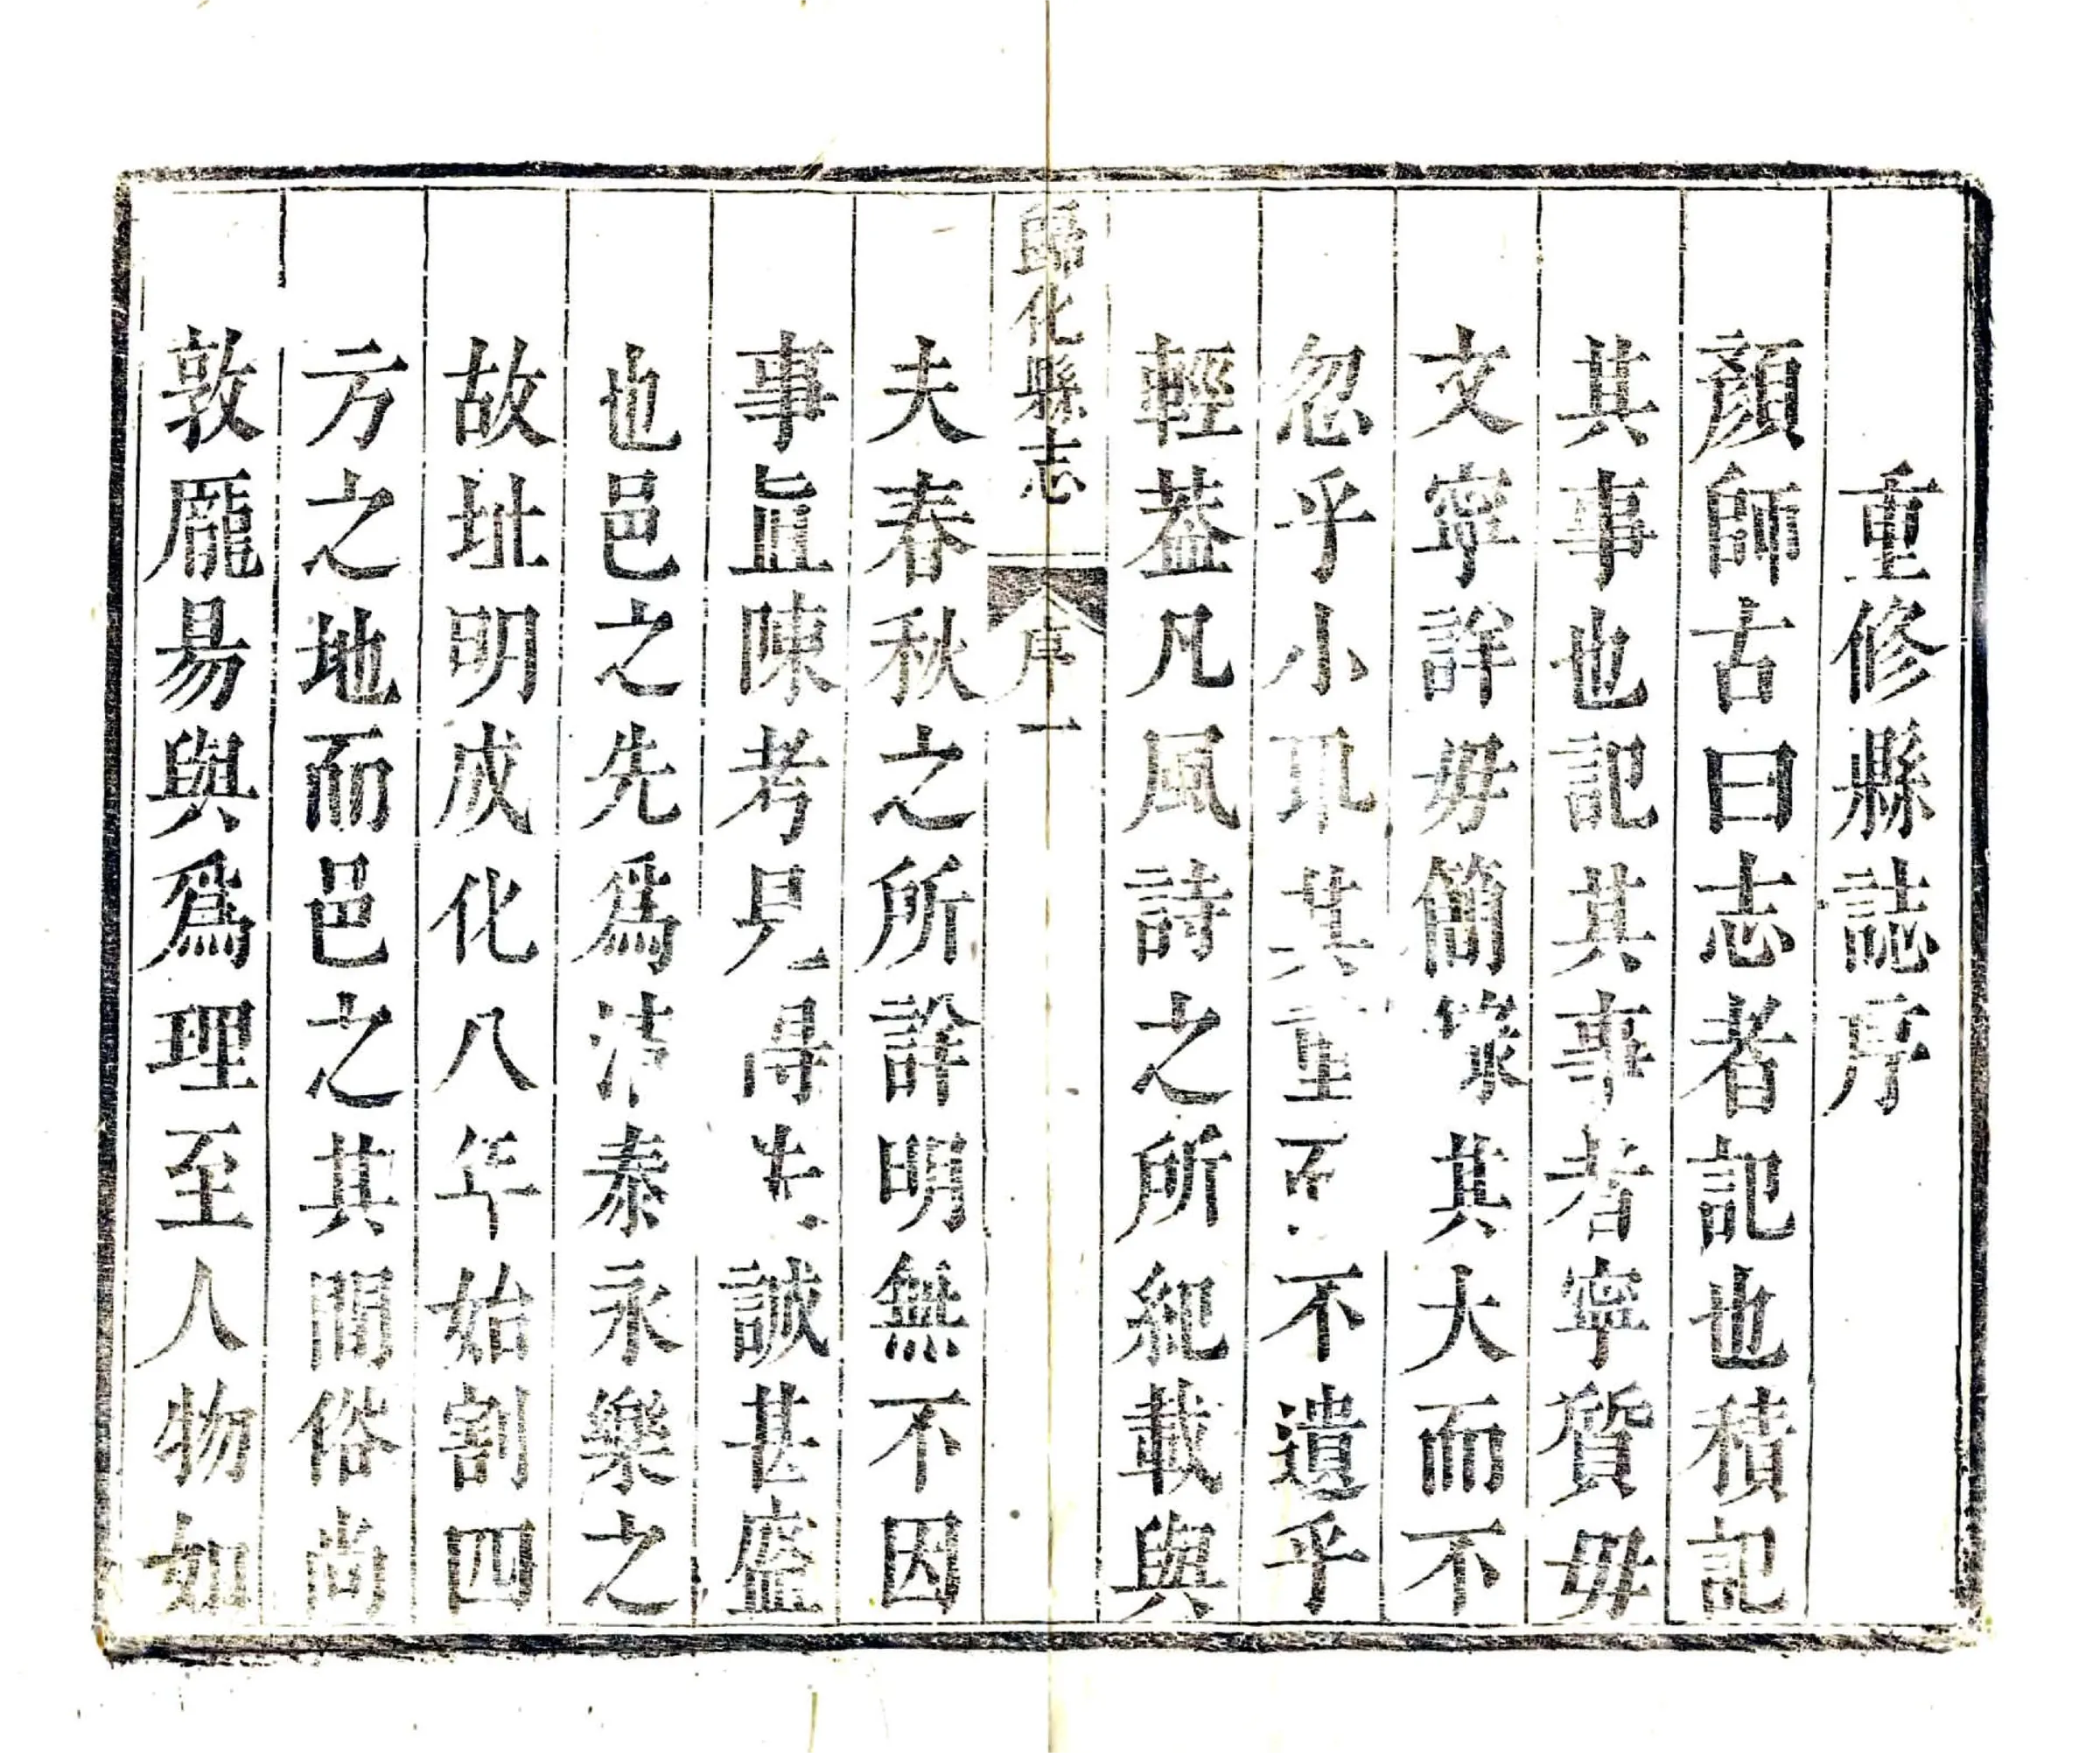 重修縣誌序
顏師古曰志者記也積記
其事也記其事者寧質毋
文寧詳毋簡其大而不
忽乎小取其重而不遺乎
輕葢凡風詩之所紀載與
歸化縣志 序 一
夫春秋之所詮明無不因
事直陳考見得失誠甚盛
也邑之先爲清泰永樂之
故址明成化八年始割四
方之地而邑之其間俗尚
敦龐易與爲理至人物如